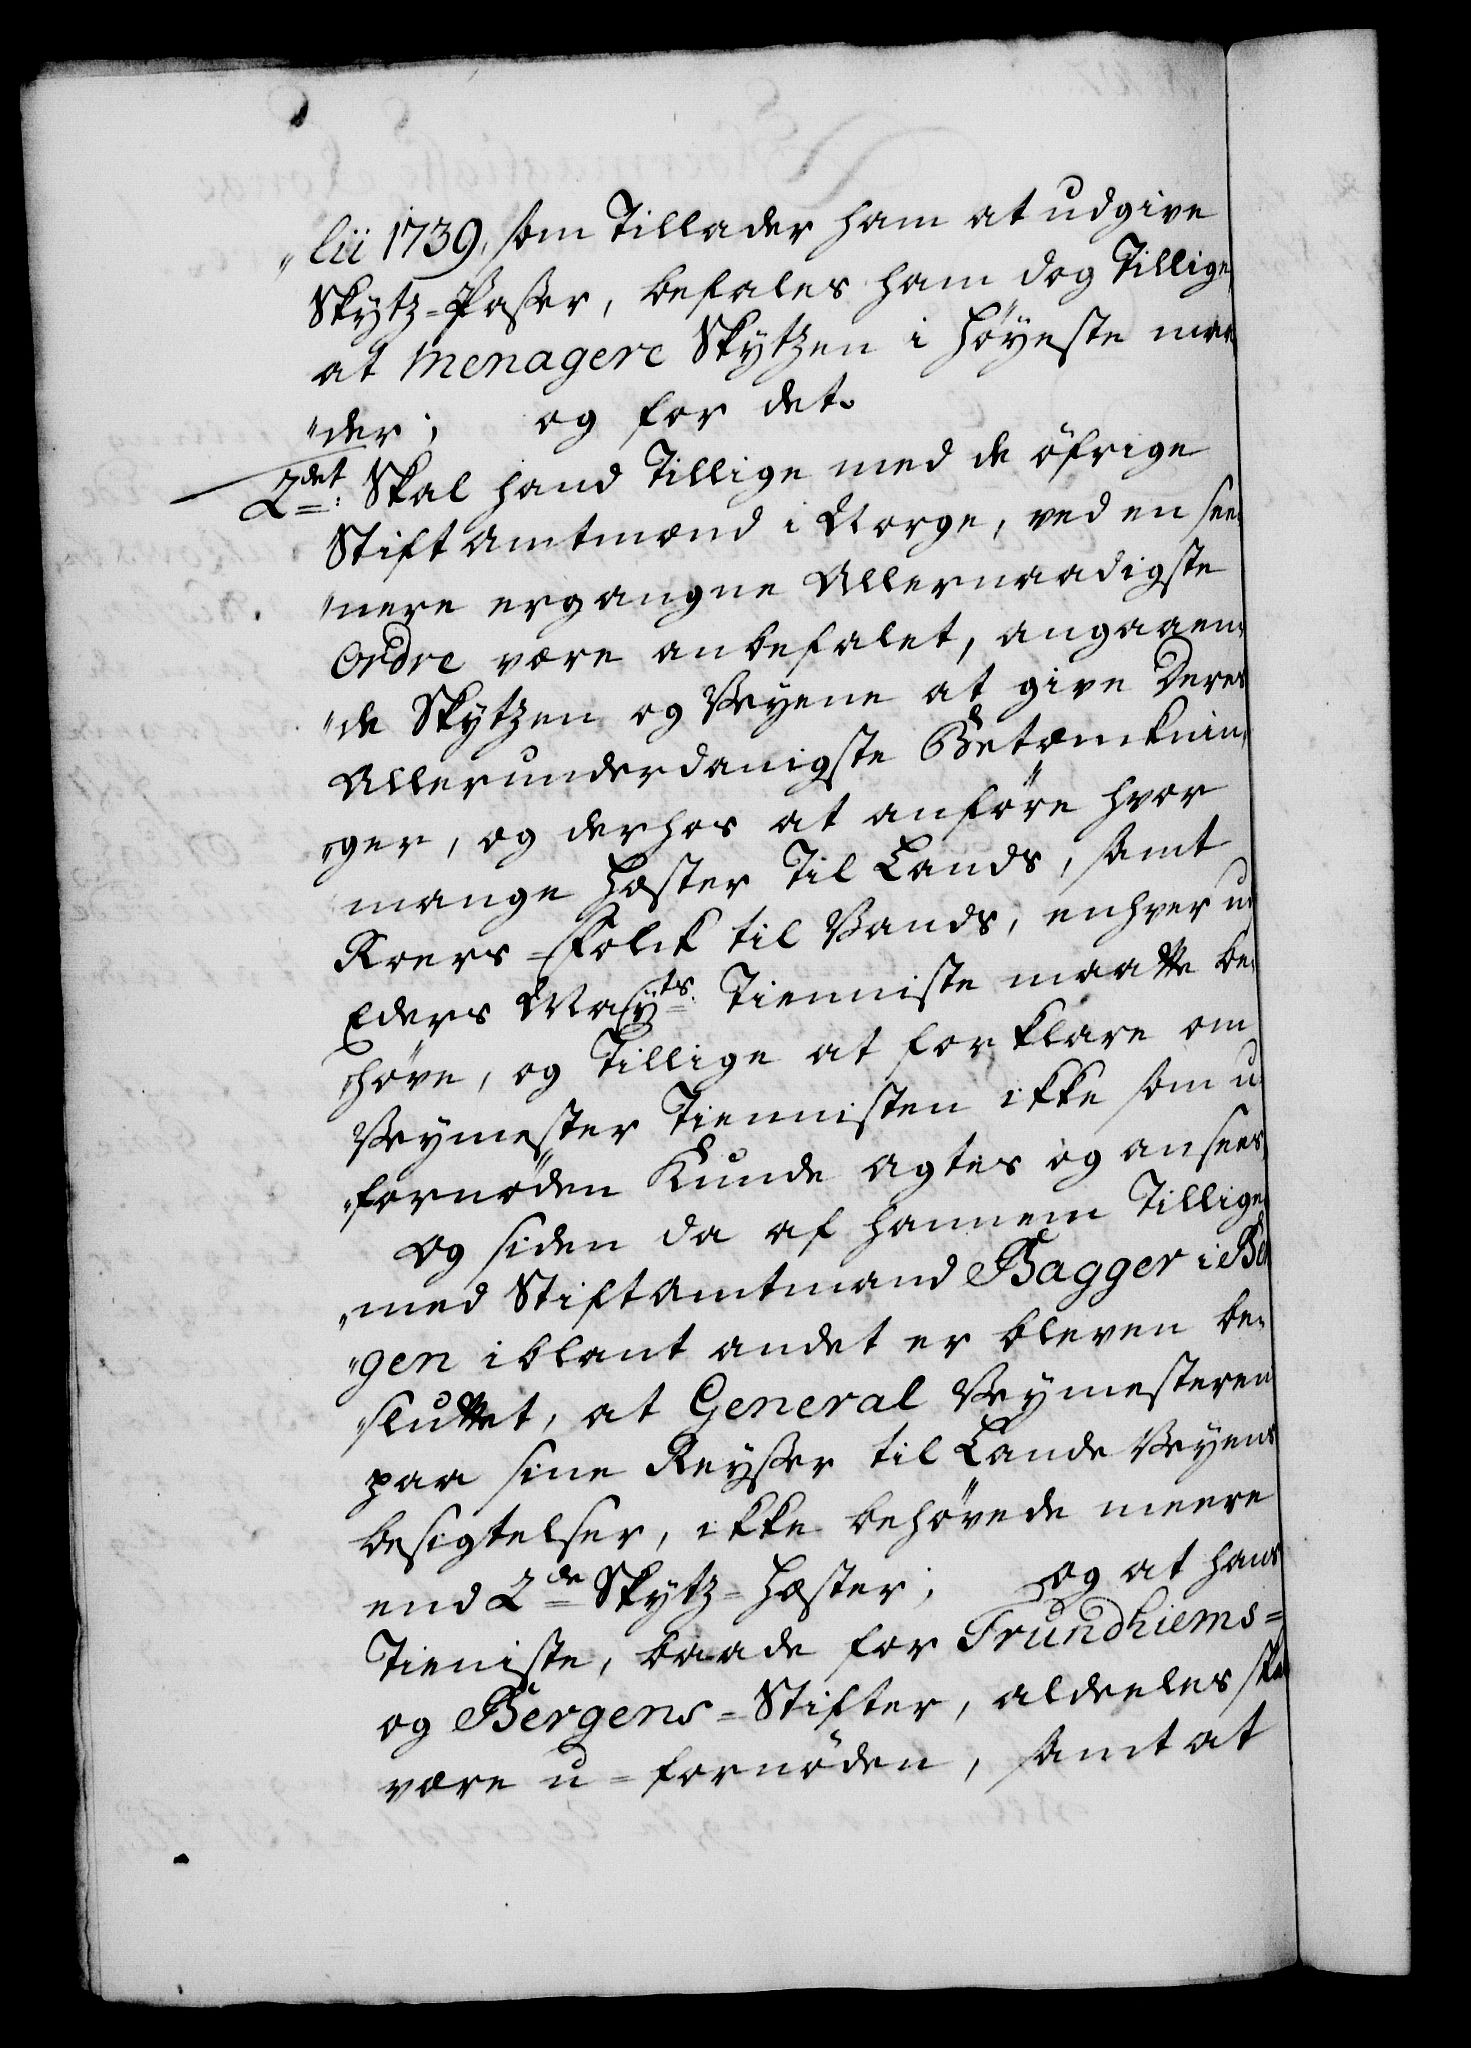 „lii 1739, som Tillader ham at udgive
Skytz=Passer, befales ham dog Tillige
at Menagere Skytzen i Höyeste maa
„der; og for det.
2det: Skal hand Tillige med de öfrige
Stiftamtmænd i Norge, ved en see„
„nere ergangne Allernaadigste
Ordre være anbefalet, angaaen„
„de Skytzen og Veyene at give Deres
Allerunderdanigste Betæncknin„
„ger, og derhos at anföre hvor
mange Hæster Til Lands, samt
Roers=Folck til Vands, enhver udi
Eders Mayts. Tienniste maatte be„
„höve, og Tillige at forklare om
Veymester Tiennisten ikke som u„
„fornöden kunde agtes og ansees,
og siden da af hannem Tillige
„med Stiftamtmand Bagger i Ber
„gen iblant andet er bleven be„
„sluttet, at General Veymesteren
paa sine Reysser til Lande Veyens
besigtelser, ikke behövede meere
end 2de Skytz=Hæster; og at hans
Tieniste, baade for Trundhiems=
og Bergens=Stifter, aldeeles skal
være u=fornöden, samt at